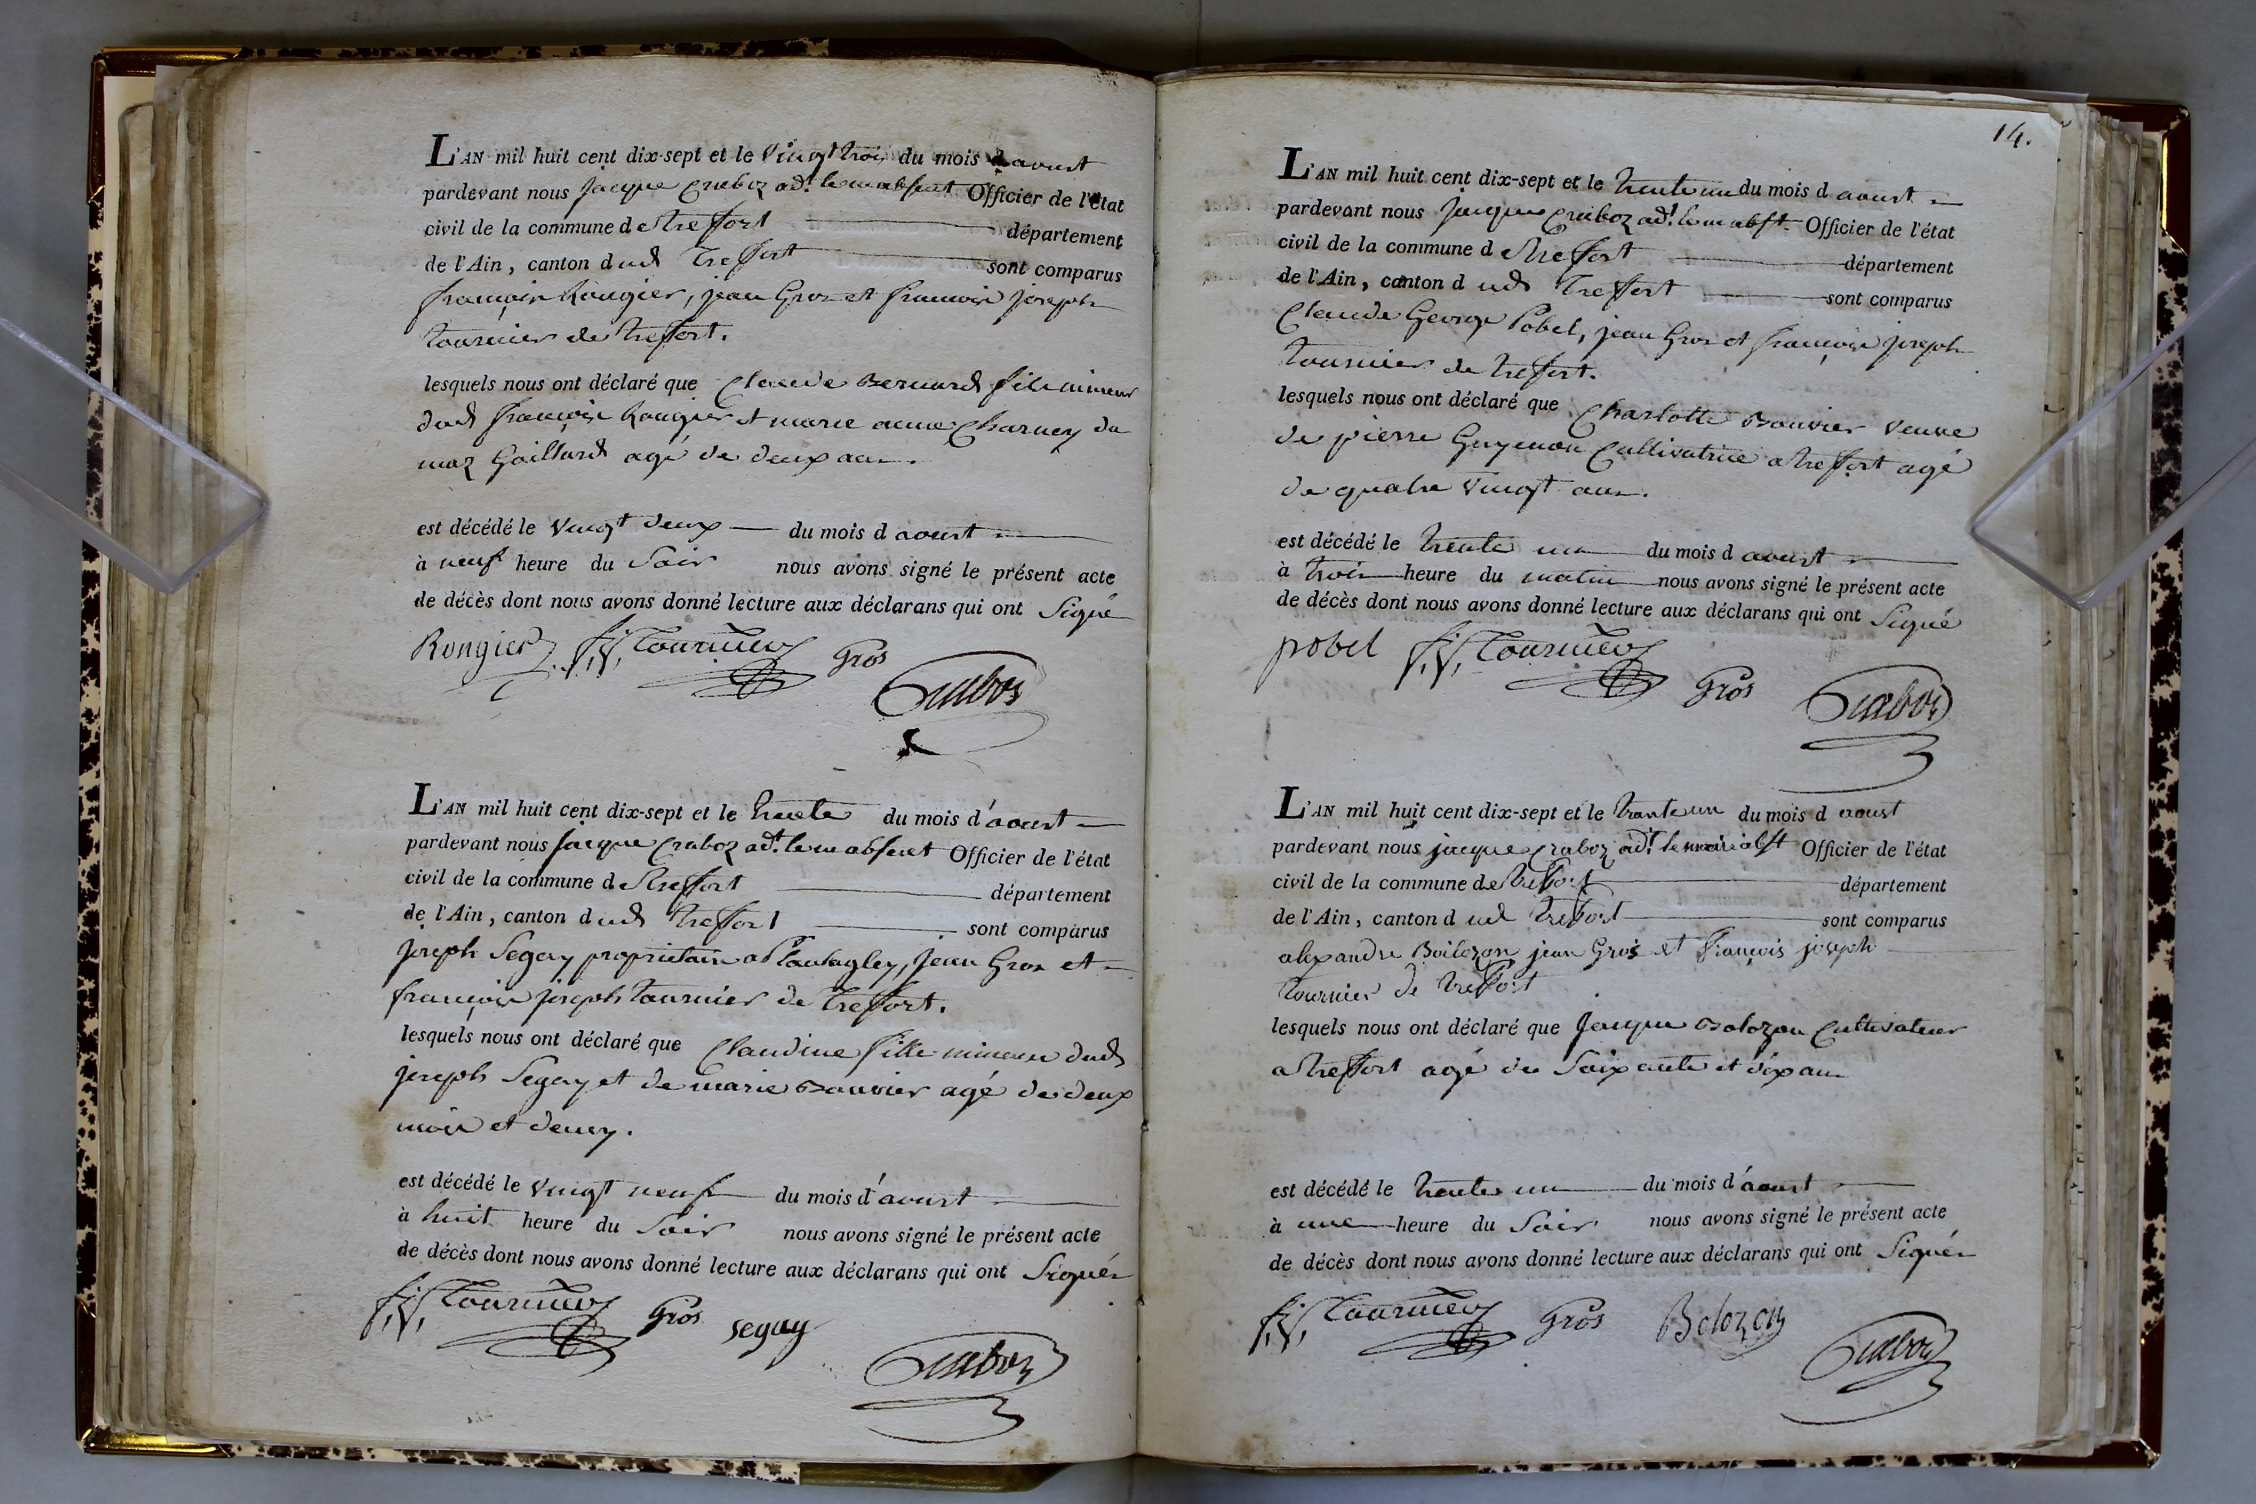 L'AN mil huit cent dix-sept et le vingt trois du mois d aoust
pardevant nous jacque Craboz adt. le m absent Officier de l'état
civil de la commune de Treffort département
de l'Ain, canton dud Treffort sont comparus
françois Rougier, jean Gros et françois joseph
tournier de treffort.
lesquels nous ont déclaré que Claude Bernard fils mineur
dud françois Rougier et marie anne Charney du
maz Gaillard agé de deux ans.
est décédé le vingt deux du mois d aoust
à neuf heure du Soir nous avons signé le présent acte
de décès dont nous avons donné lecture aux déclarans qui ont Signé
Rongier f. j. Tournier Gros
Crabos
L'AN mil huit cent dix-sept et le trente du mois d'aoust
pardevant nous jacque Craboz adt. le m absent Officier de l'état
civil de la commune de Treffort département
de l'Ain, canton dud Treffort sont comparus
joseph Segay proprietaire a Plantagley, jean Gros et
françois joseph tournier de Treffort.
lesquels nous ont déclaré que Claudine fille mineure dud
joseph Segay et de marie Bouvier agé de deux
mois et demy.
est décédé le vingt neuf du mois d'aoust
à huit heure du Soir nous avons signé le présent acte
de décès dont nous avons donné lecture aux déclarans qui ont Signés
f. j. Tournier Gros segay
Craboz
14.
L'AN mil huit cent dix-sept et le trente un du mois d aoust
pardevant nous jacque Craboz adt. le m abst. Officier de l'état
civil de la commune d Treffort département
de l'Ain, canton d ud Treffort sont comparus
Claude George Pobel, jean Gros et françois joseph
tournier de treffort.
lesquels nous ont déclaré que Charlotte Bouvier veuve
de pierre Guyenon Cultivatrice a treffort agé
de quatre vingt ans.
est décédé le trente un du mois d aoust
à trois heure du matin nous avons signé le présent acte
de décès dont nous avons donné lecture aux déclarans qui ont Signé
pobel f. j. Tournier Gros
Craboz
L'AN mil huit cent dix-sept et le trante un du mois d aoust
pardevant nous jacque Craboz adt. le maire abst Officier de l'état
civil de la commune de Treffort département
de l'Ain, canton d ud Treffort sont comparus
alexandre Bolozon jean Gros et françois joseph
tournier de treffort
lesquels nous ont déclaré que Jacque Bolozon Cultivateur
a treffort agé de Soixante et dix ans
est décédé le trente un du mois d'aoust
à une heure du Soir nous avons signé le présent acte
de décès dont nous avons donné lecture aux déclarans qui ont Signés
f. j. Tournier Gros Bolozon
Craboz